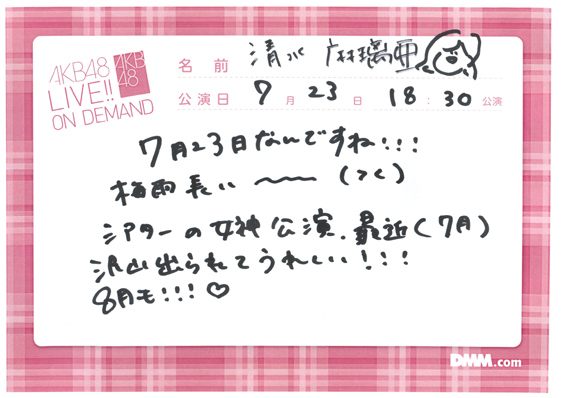 AKB48
LIVE!!
ON DEMAND
AKB
48
名前 清水麻璃亜
公演日 7月23日 18:30公演
7月23日なんですね!!!
梅雨長い〜〜 (><)
シアターの女神公演、最近(7月)
沢山出られてうれしい!!!
8月も!!!♡
DMM.com